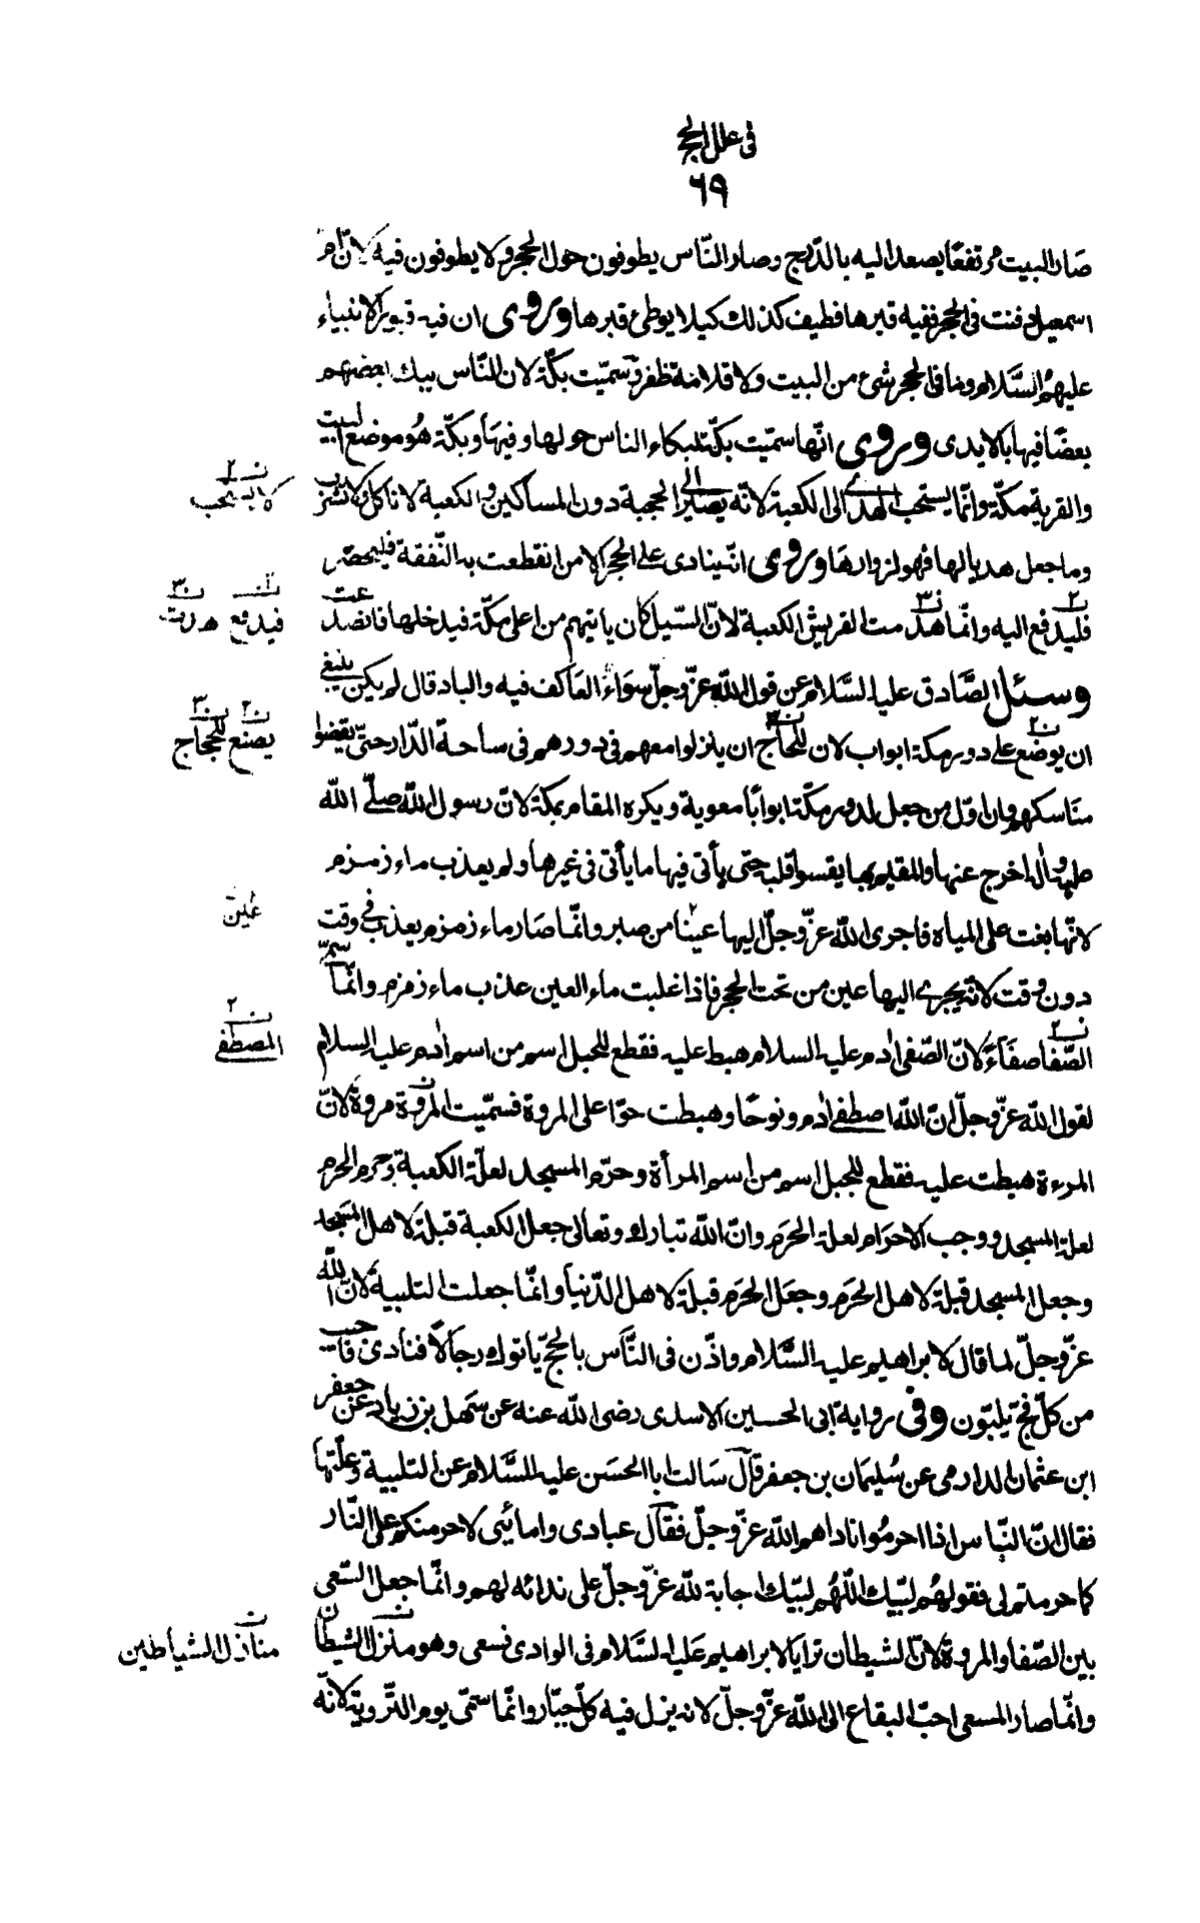 فى علل الحج
٦٩
صار البيت مرتفعًا يصعد اليه بالدّرج وصار النّاس يطوفون حول الحجر ولا يطوفون فيه لانّ امّ
اسمعيل دفنت فى الحجر ففيه قبرها فطيف كذلك كيلا يوطئ قبرها وروى ان فيه قبور الانبياء
عليهم السَّلام وما فى الحجر شئ من البيت ولا قلامة ظفر وسمّيت بكّة لان النّاس يبك بعضهم
بعضًا فيها بالايدى وروى انّها سمّيت بكّة لبكاء الناس حولها وفيها وبكّة هُو موضع البيت
والقرية مكّة وانّما يستحب الهدى الى الكعبة لانّه يصير الى الحجبة دون المساكين والكعبة لا تاكل ولا تشرب
ن ٢
لا يستحب
وما جعل هديا لها فهو لزوارها وروى انّه ينادى على الحجر الا من انقطعت به النّفقة فليحضر
فليدفع اليه وانّما هدمت القريش الكعبة لانّ السّيل كان ياتيهم من اعلى مكّة فيدخلها فانصدعت
فيدفع هدت
وسئل الصَّادق عليه السَّلام عن قول اللّه عزّ وجلّ سواءً العاكف فيه والباد قال لم يكن ينبغى
ان يوضع على دور مكة ابواب لان للحاج ان ينزلوا معهم فى دورهم فى ساحة الدّار حتّى يقضوا
يصنع للحجاج
مناسكهم وان اوّل من جعل لدور مكّة ابوابًا معوية ويكره المقام بمكة لانّ رسول اللّه صلّى اللّه
عليه واله اخرج عنها والمقيم بها يقسو قلبه حتى يأتى فيها ما يأتى فى غيرها ولم يعذب ماء زمزم
لانّها بغت على المياه فاجرى اللّه عزّ وجلّ اليها عينًا من صبر وانّما صار ماء زمزم يعذب فى وقت
عين
دون وقت لانّه يجرى اليها عين من تحت الحجر فاذا غلبت ماء العين عذب ماء زمزم وانّما سمّى
الصّفا صفاءً لانّ الصّفى ادم عليه السلام هبط عليه فقطع للجبل اسم من اسم ادم عليه السلام
ن ٢
المصطفى
لقول اللّه عزّ وجلّ انّ اللّه اصطفى ادم ونوحًا وهبطت حوّا على المروة فسمّيت المروة مروة لانّ
المرءة هبطت عليه فقطع للجبل اسم من اسم المرأة وحرّم المسجد لعلّة الكعبة وحرم الحرم
لعلة المسجد ووجب الاحرام لعلة الحرم وانّ اللّه تبارك وتعالى جعل الكعبة قبلة لاهل المسجد
وجعل المسجد قبلة لاهل الحرَم وجعَل الحرَم قبلة لاهل الدّنيا وانّما جعلت التلبية لانّ اللّه
عزّ وجلّ لما قال لابراهيم عليه السَّلام واذّن فى النَّاس بالحجّ يأتوك رجالاً فنادى فاجيب
من كلّ فجّ يلبّون وفى رواية ابى الحسين الاسدى رضى اللّه عنه عن سَهل بن زياد عن جعفر
ابن عثمان الدارمى عن سُليمَان بن جعفر قال سَالت ابا الحسَن عليه السَّلام عن التلبية وعلّتها
فقال انّ النّاس اذا احرمُوا ناداهم اللّه عزّ وجلّ فقال عبادى وامائى لاحرمنكم على النّار
كما حرمتم لى فقولهُم لبّيك اللّهُم لبّيك اجابة للّه عزّ وجلّ على ندائه لهم وانّما جعل السّعى
بين الصّفا والمروة لانّ الشيطان ترايا لابراهيم عليه السّلام فى الوادى فسعى وهو منزل الشيطان
ن
منازل الشياطين
وانّما صار المسعى احبّ البقاع الى اللّه عزّ وجلّ لانه يزل فيه كلّ جبّار وانّما سمّى يوم التّروية لانّه